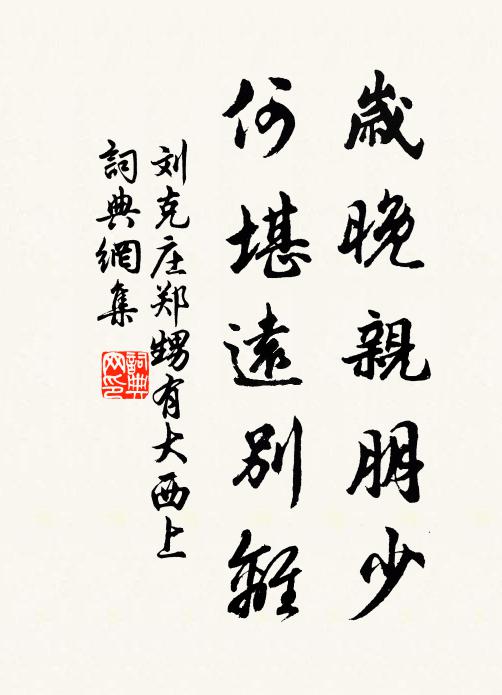 歲晚親朋少
何堪遠別離
刘克庄郑甥有大西上
詞典網集
詞典
网印